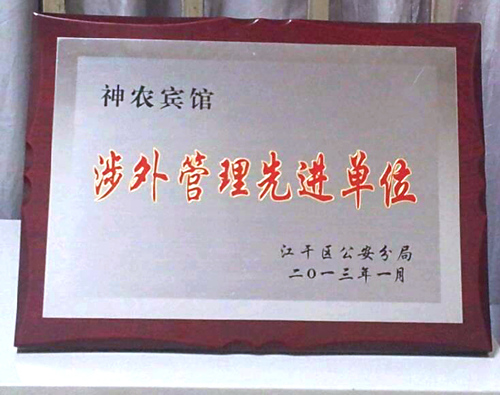 神农宾馆
涉外管理先进单位
江干区公安分局
二〇一三年一月